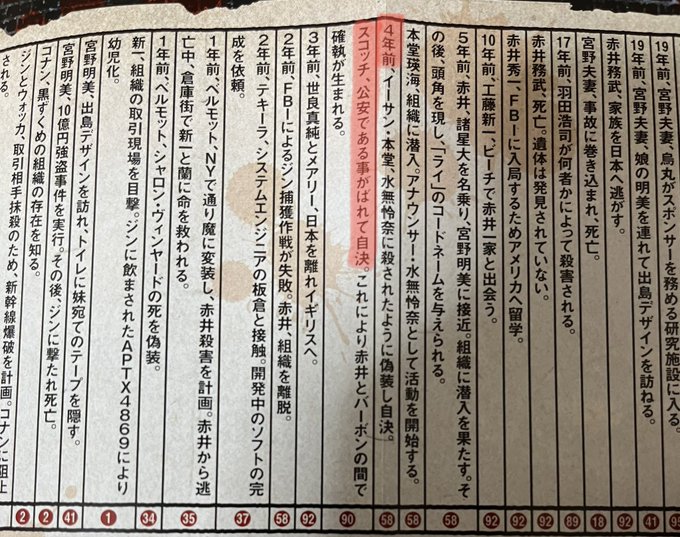 19年前、宮野夫妻、烏丸がスポンサーを務める研究施設に入る。
95
19年前、宮野夫妻、娘の明美を連れて出島デザインを訪ねる。
41
赤井務武、家族を日本へ逃がす。
92
宮野夫妻、事故に巻き込まれ、死亡。
18
17年前、羽田浩司が何者かによって殺害される。
89
赤井務武、死亡。遺体は発見されていない。
92
赤井秀一、FBIに入局するためアメリカへ留学。
92
10年前、工藤新一、ビーチで赤井一家と出会う。
92
5年前、赤井、諸星大を名乗り、宮野明美に接近。組織に潜入を果たす。そ
の後、頭角を現し、「ライ」のコードネームを与えられる。
58
本堂瑛海、組織に潜入。アナウンサー・水無怜奈として活動を開始する。
58
4年前、イーサン・本堂、水無怜奈に殺されたように偽装し自決。
58
スコッチ、公安である事がばれて自決。これにより赤井とバーボンの間で
確執が生まれる。
90
3年前、世良真純とメアリー、日本を離れイギリスへ。
92
2年前、FBIによるジン捕獲作戦が失敗。赤井、組織を離脱。
58
2年前、テキーラ、システムエンジニアの板倉と接触。開発中のソフトの完
成を依頼。
37
1年前、ベルモット、NYで通り魔に変装し、赤井殺害を計画。赤井から逃
亡中、倉庫街で新一と蘭に命を救われる。
35
1年前、ベルモット、シャロン・ヴィンヤードの死を偽装。
34
新一、組織の取引現場を目撃。ジンに飲まされたAPTX4869により
幼児化。
1
宮野明美、出島デザインを訪れ、トイレに妹宛てのテープを隠す。
41
宮野明美、10億円強盗事件を実行。その後、ジンに撃たれ死亡。
2
コナン、黒ずくめの組織の存在を知る。
2
ジンとウォッカ、取引相手抹殺のため、新幹線爆破を計画。コナンに阻止
される。